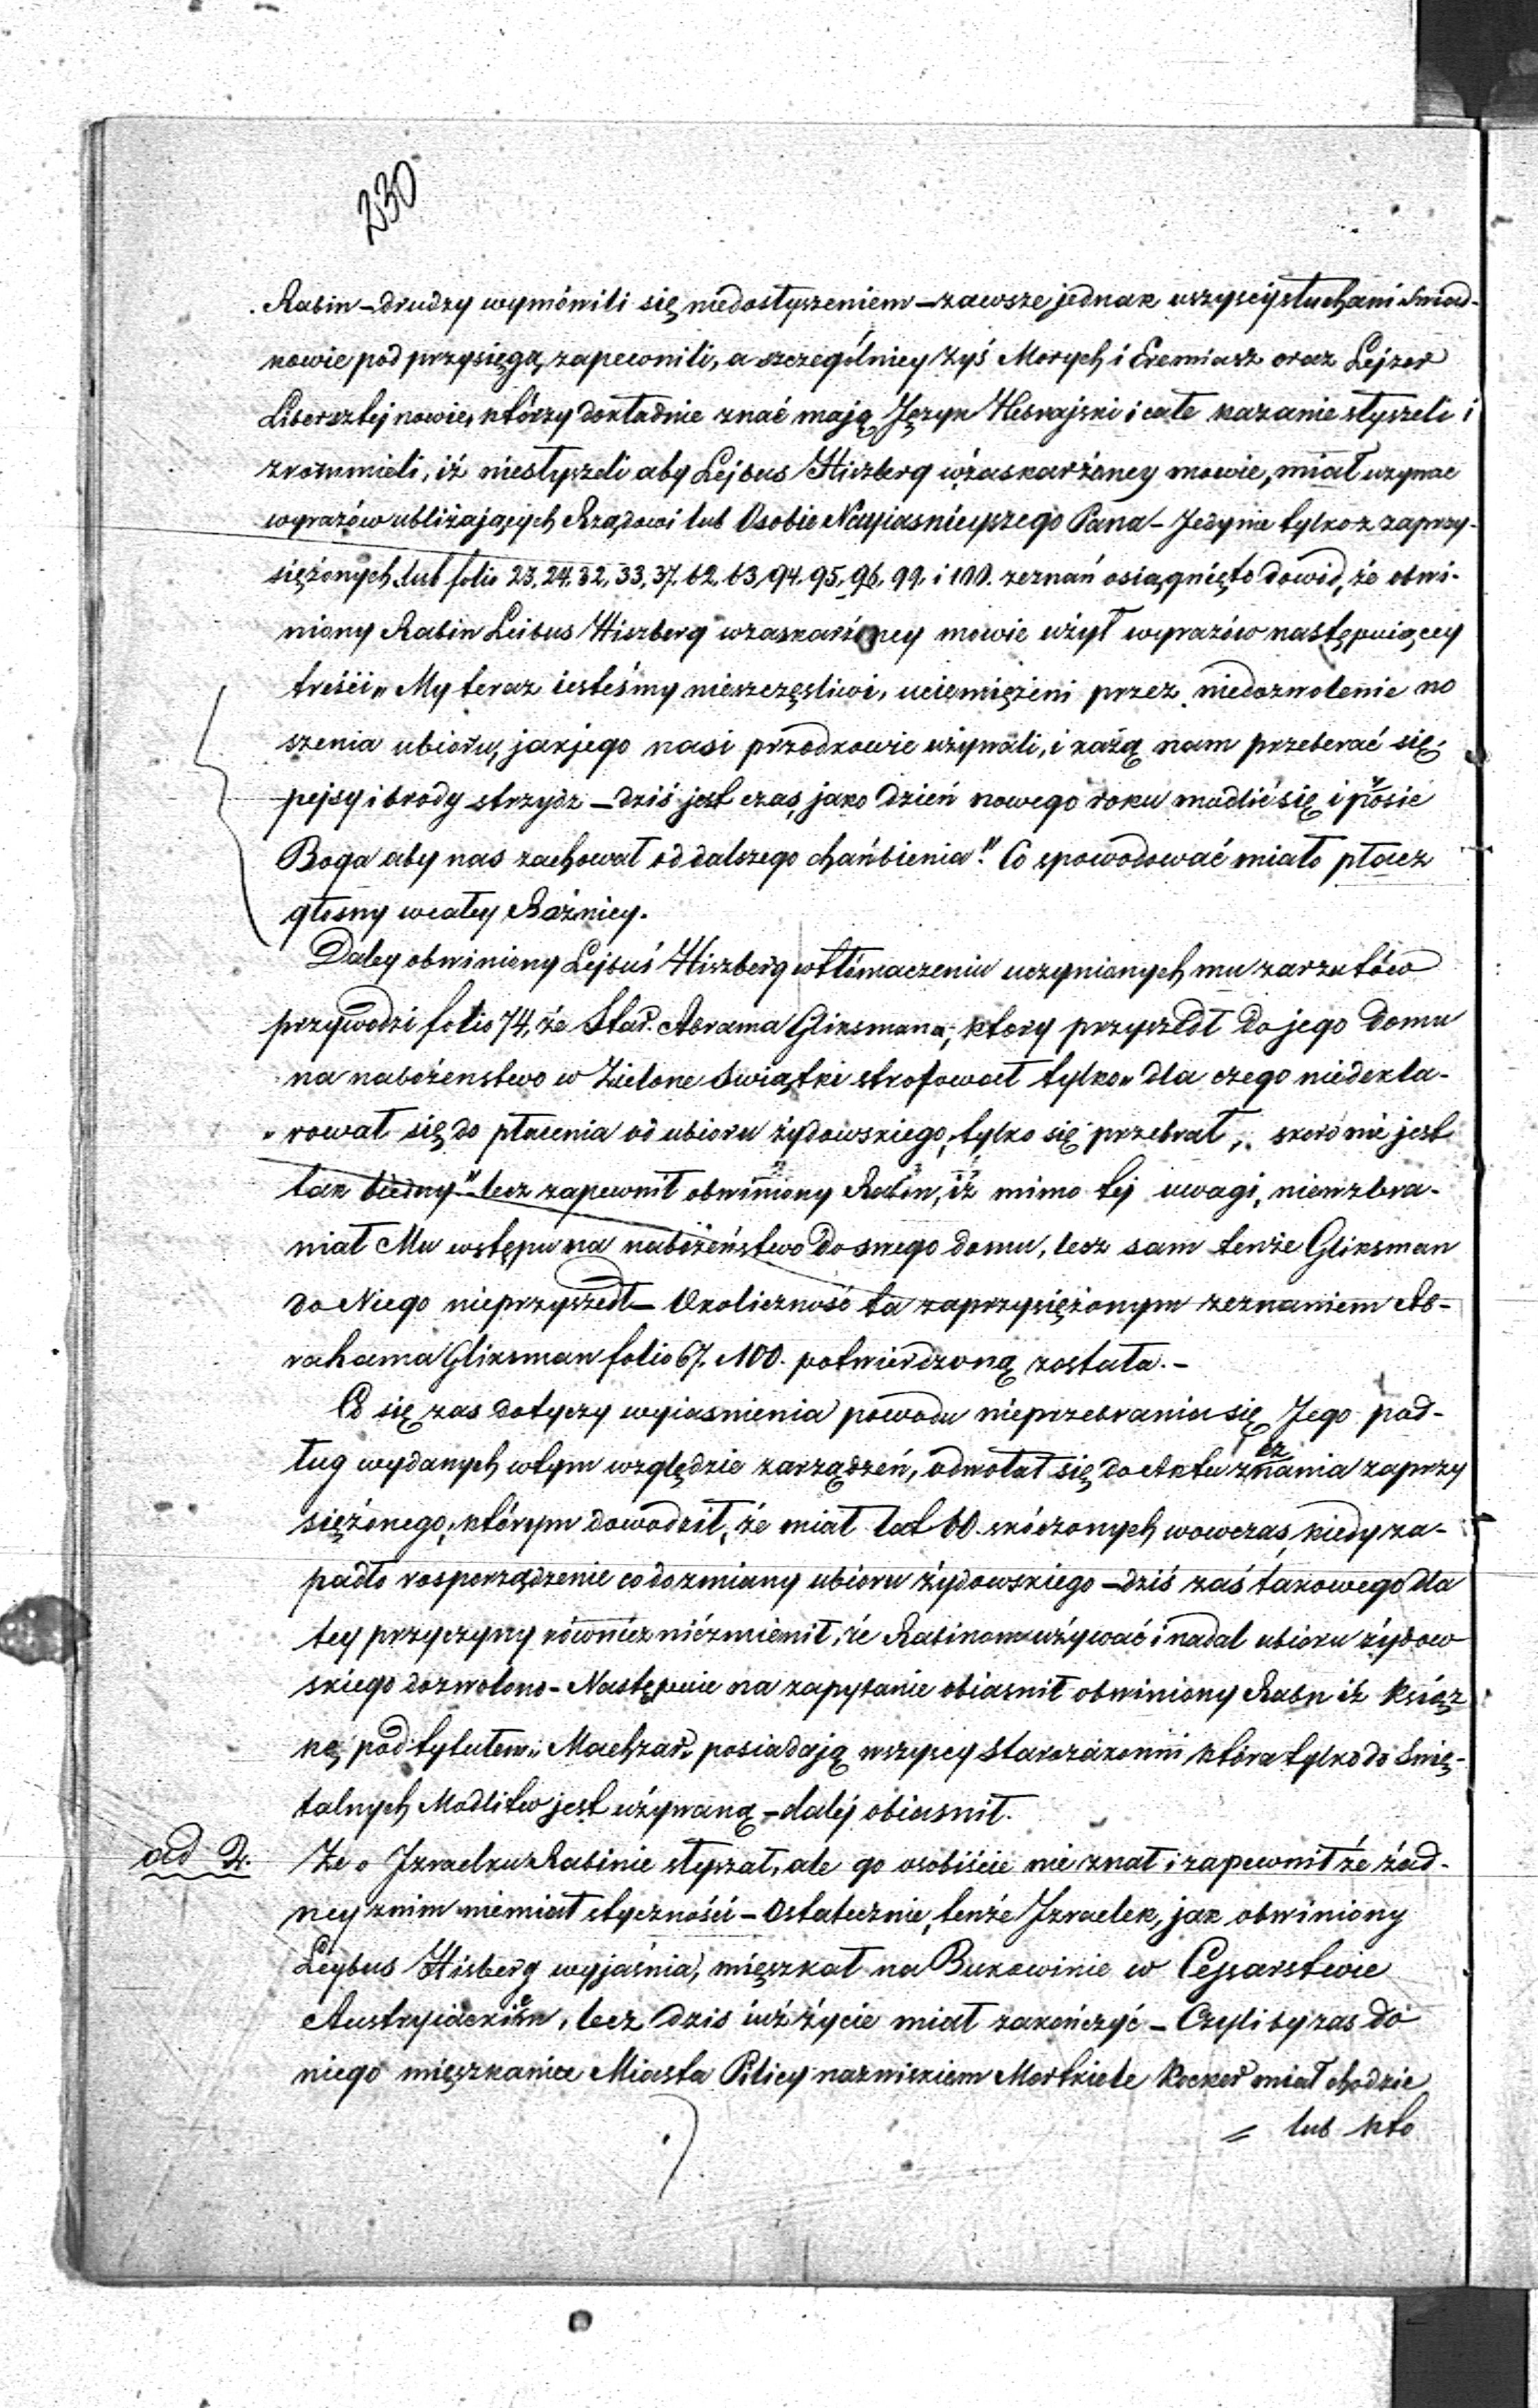 230
Rabin – drudzy wymówili się niedosłyszeniem – zawsze jednak wszyscy słuchani świad-
kowie pod przysięgą zapewnili, a szczególniey Zyś Morych i Eremiasz oraz Lejzer
Libersztejnowie, którzy dokładnie znać mają Język Hebrajski i całe kazanie słyszeli i
zrozumieli, iż niesłyszeli aby Lejbus Hiszberg w zaskarżoney mowie, miał używac
wyrazów ubliżających Rządowi lub Osobie Nayiasnieyszego Pana – Jedynie tylko z zaprzy-
siężonych sub folio 23, 24, 32, 33, 37, 62, 63, 94, 95, 96, 99, i 100. zeznań osiągnięto dowód, że obwi-
niony Rabin Leibus Hiszberg w zaskarżoney mowie użył wyrazów następuiącey
treści „My teraz iesteśmy nieszczęsliwi, uciemiężeni przez niedozwolenie no
szenia ubioru, jakiego nasi przodkowie używali, i każą nam przebierać się,
pejsy i brody strzydz – dziś jest czas, jako dzień nowego roku modlić się i prosić
Boga aby nas zachował od dalszego chańbienia". Co spowodować miało płacz
głosny w całey Bóżnicy.
Daley obwiniony Lejbuś Hiszberg w tłómaczeniu uczynionych mu zarzutów
przywodzi folio 74, że Star. Abrama Gliksmana, ktory przyszedł do jego domu
na nabożenstwo w Zielone Swiątki strofował tylko „dla czego niedekla-
„rował się do płacenia od ubioru żydowskiego, tylko się przebrał, skoro nie jest
tak biedny" – lecz zapewnił obwiniony Rabin, iż mimo tej uwagi, niewzbra-
niał Mu wstępu na nabożeństwo do swego domu, lecz sam tenże Gliksman
do Niego nieprzyszedł – Okoliczność ta zaprzysiężonym zeznaniem Ab-
rahama Gliksman folio 67. 100. potwierdzoną została. –
Co się zas dotyczy wyiasnienia powodu nieprzebrania się Jego pod-
ług wydanych w tym względzie zarządzeń, odwołał się do Aktu zeznania zaprzy
siężonego, którym dowodził, że miał lat 60 skończonych wowczas, kiedy za-
padło rosporządzenie co do zmiany ubioru żydowskiego – dziś zaś takowego dla
tey przyczyny również niezmienił, że Rabinom używać i nadal ubioru żydow
skiego dozwolono – Następnie na zapytanie obiasnił obwiniony Rabin iż książ
kę, pod tytułem „Machzar" posiadają wszyscy starozakonni która tylko do Swię-
talnych Modlitw jest używaną – daléj obiasnił.
ad 2. Że o Izraelku Rabinie słyszał, ale go osobiście nie znał i zapewnił że żad-
ney z nim niemiał styczności – Ostatecznie, tenże Izraelek, jak obwiniony
Leybus Hisberg wyjaśnia, mięszkał na Bukowinie w Cesarstwie
Austryiackiem, lecz dzis iuż życie miał zakończyć – Czyliby zas do
niego mięszkaniec Miasta Pilicy nazwiskiem Mortkiele Kocker miał chodzic
= lub kto